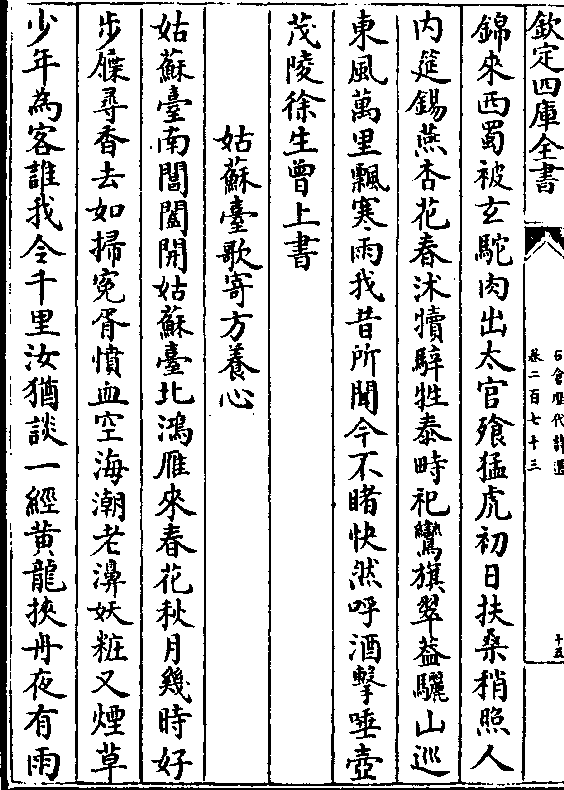 欽定四庫全書
石倉歴代詩選
卷二百七十三
十五
錦來西蜀被玄駝肉出太官飱猛虎初日扶桑稍照人
内筵錫燕杏花春沐犢騂牲泰畤祀鸞旗翠葢驪山巡
東風萬里飄寒雨我昔所聞今不睹快然呼酒擊唾壺
茂陵徐生曾上書
姑蘇臺歌寄方養心
姑蘇臺南閶闔開姑蘇臺北鴻雁來春花秋月幾時好
步屧尋香去如掃寃胥憤血空海潮老濞妖粧又煙草
少年為客誰我令千里汝猶談一經黄龍挾舟夜有雨